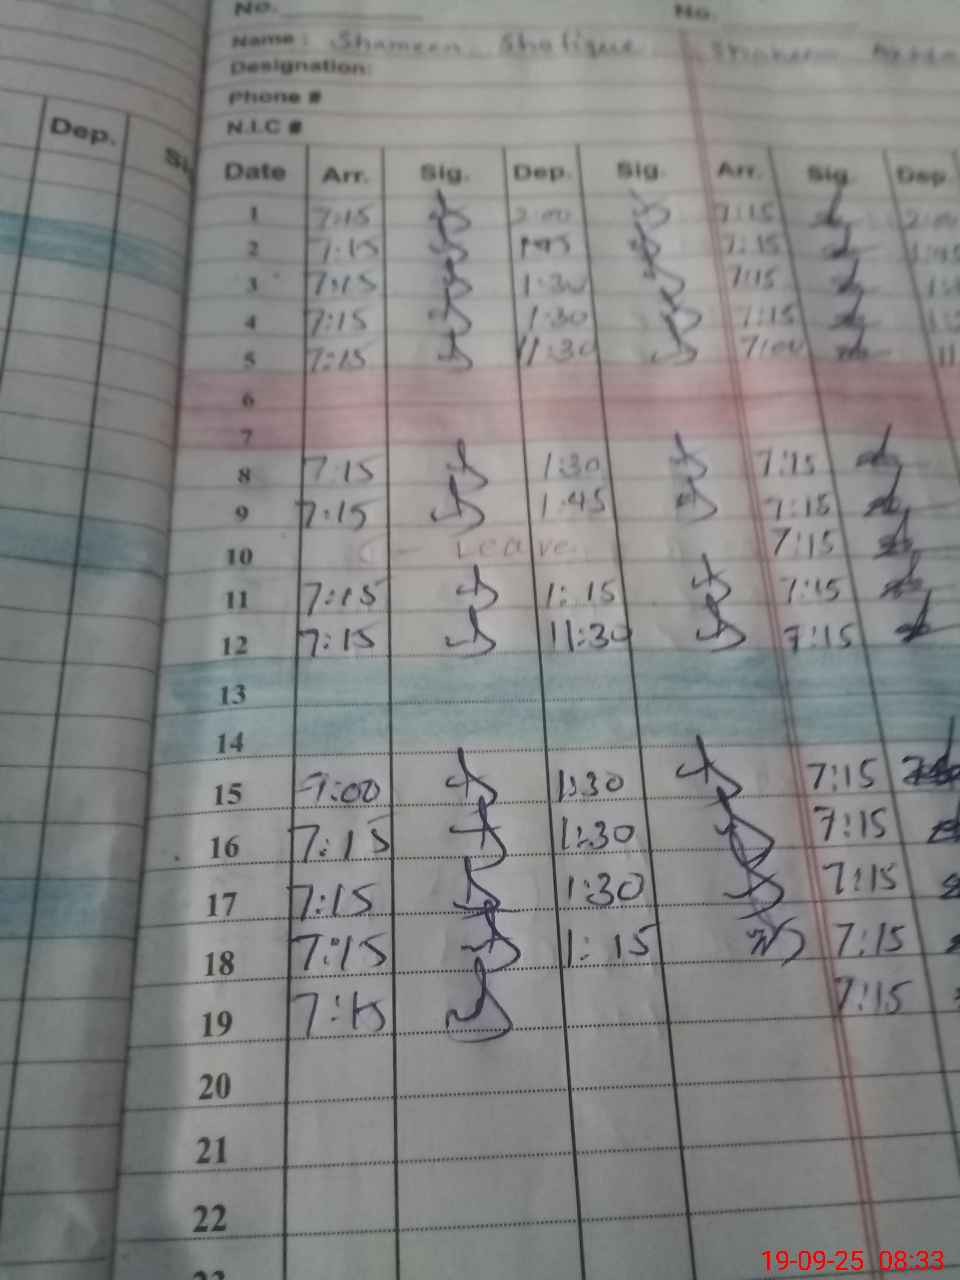 No. No.
Name: Shameen Shafique Shaheen
Designation:
Phone #
N.I.C #
Dep.
Date Arr. Sig. Dep. Sig. Arr. Sig. Dep.
1 7:15 2:00 7:15 2:00
2 7:15 1:45 7:15 1:45
3 7:15 1:30 7:15
4 7:15 1:30 7:15
5 7:15 11:30 7:00
6
7
8 7:15 1:30 7:15
9 7:15 1:45 7:15
10 Leave 7:15
11 7:15 1:15 7:15
12 7:15 11:30 7:15
13
14
15 7:00 1:30 7:15
16 7:15 1:30 7:15
17 7:15 1:30 7:15
18 7:15 1:15 7:15
19 7:15 7:15
20
21
22
23
19-09-25 08:33